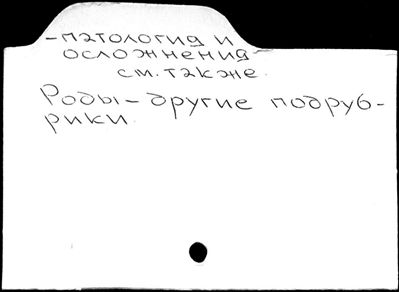 -патология и
осложнения-
см. также.
Роды-другие подруб-
рики.